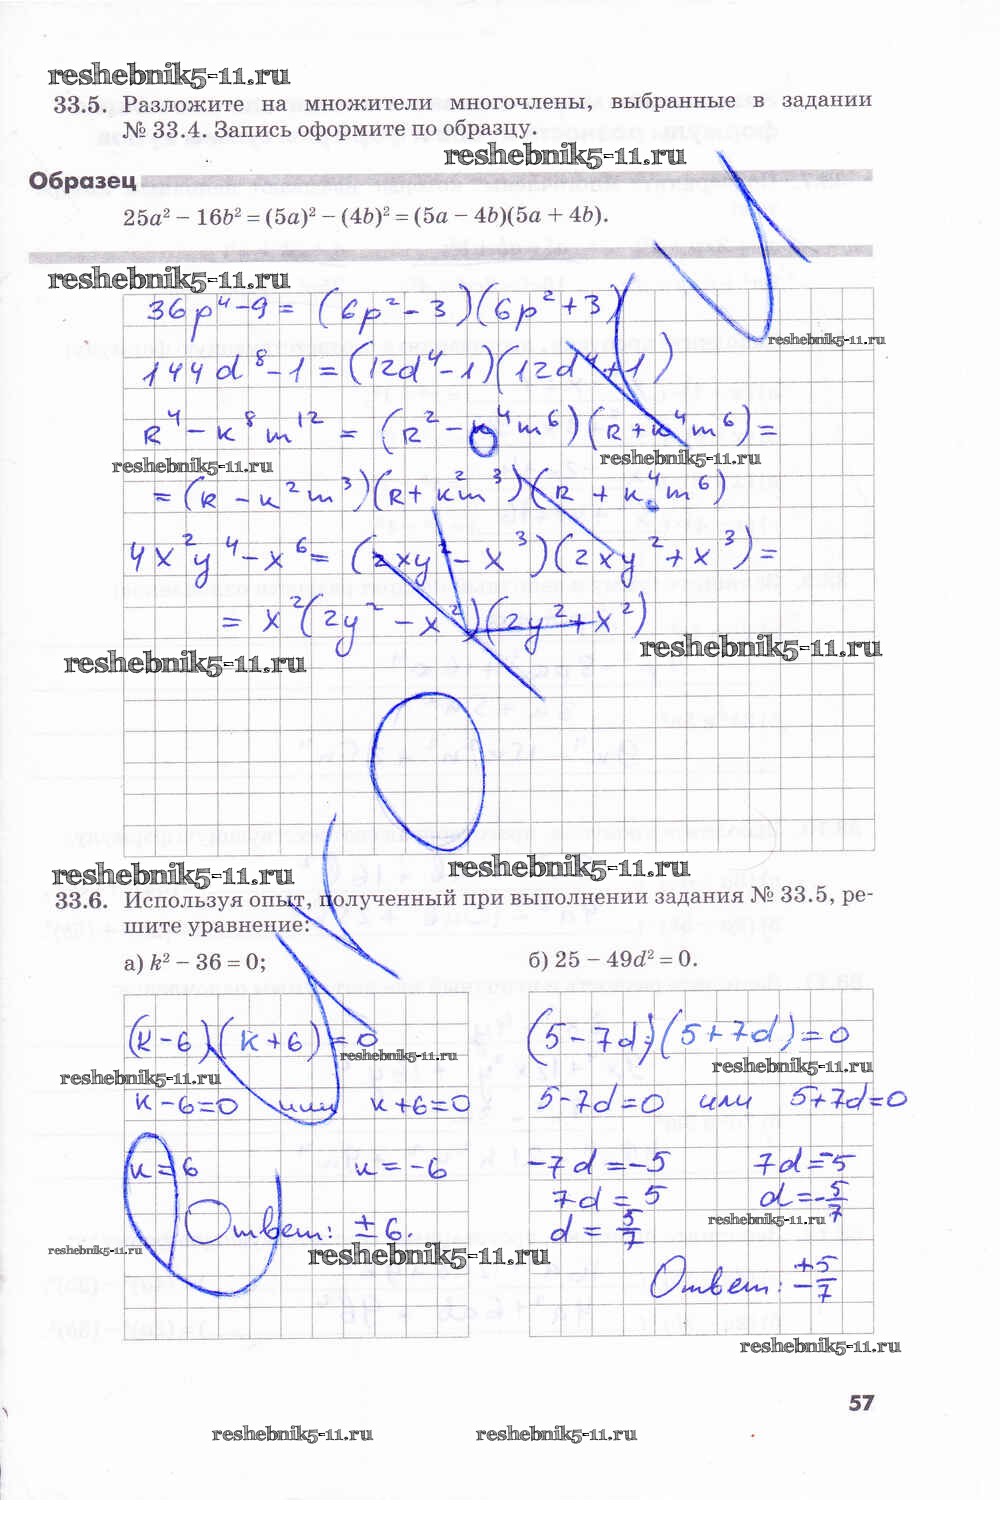 reshebnik5-11.ru
33.5. Разложите на множители многочлены, выбранные в задании
№ 33.4. Запись оформите по образцу.
reshebnik5-11.ru
Образец
25a² − 16b² = (5a)² − (4b)² = (5a − 4b)(5a + 4b).
reshebnik5-11.ru
36p⁴ − 9 = (6p² − 3)(6p² + 3)
reshebnik5-11.ru
144d⁸ − 1 = (12d⁴ − 1)(12d⁴ + 1)
R⁴ − k⁸m¹² = (R² − k⁴m⁶)(R + k⁴m⁶) =
reshebnik5-11.ru reshebnik5-11.ru
= (R − k²m³)(R + k²m³)(R + k⁴m⁶)
4x²y⁴ − x⁶ = (2xy² − x³)(2xy² + x³) =
= x²(2y² − x²)(2y² + x²)
reshebnik5-11.ru reshebnik5-11.ru
reshebnik5-11.ru reshebnik5-11.ru
33.6. Используя опыт, полученный при выполнении задания № 33.5, ре-
шите уравнение:
а) k² − 36 = 0; б) 25 − 49d² = 0.
(k − 6)(k + 6) = 0
reshebnik5-11.ru
reshebnik5-11.ru
k − 6 = 0 или k + 6 = 0
k = 6 k = −6
Ответ: ± 6.
reshebnik5-11.ru reshebnik5-11.ru
(5 − 7d)(5 + 7d) = 0
reshebnik5-11.ru
5 − 7d = 0 или 5 + 7d = 0
−7d = −5 7d = −5
7d = 5 d = −5/7
reshebnik5-11.ru
d = 5/7
Ответ: ±5/7
reshebnik5-11.ru
57
reshebnik5-11.ru reshebnik5-11.ru